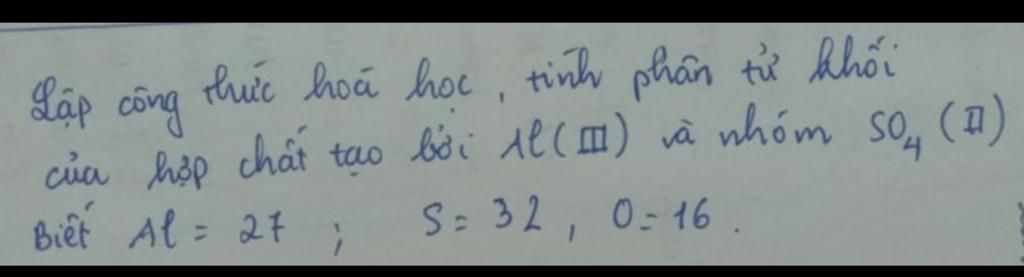 Lập công thức hoá học, tính phân tử khối
của hợp chất tạo bởi Al(III) và nhóm SO₄ (II)
Biết Al = 27 ; S = 32, O = 16.